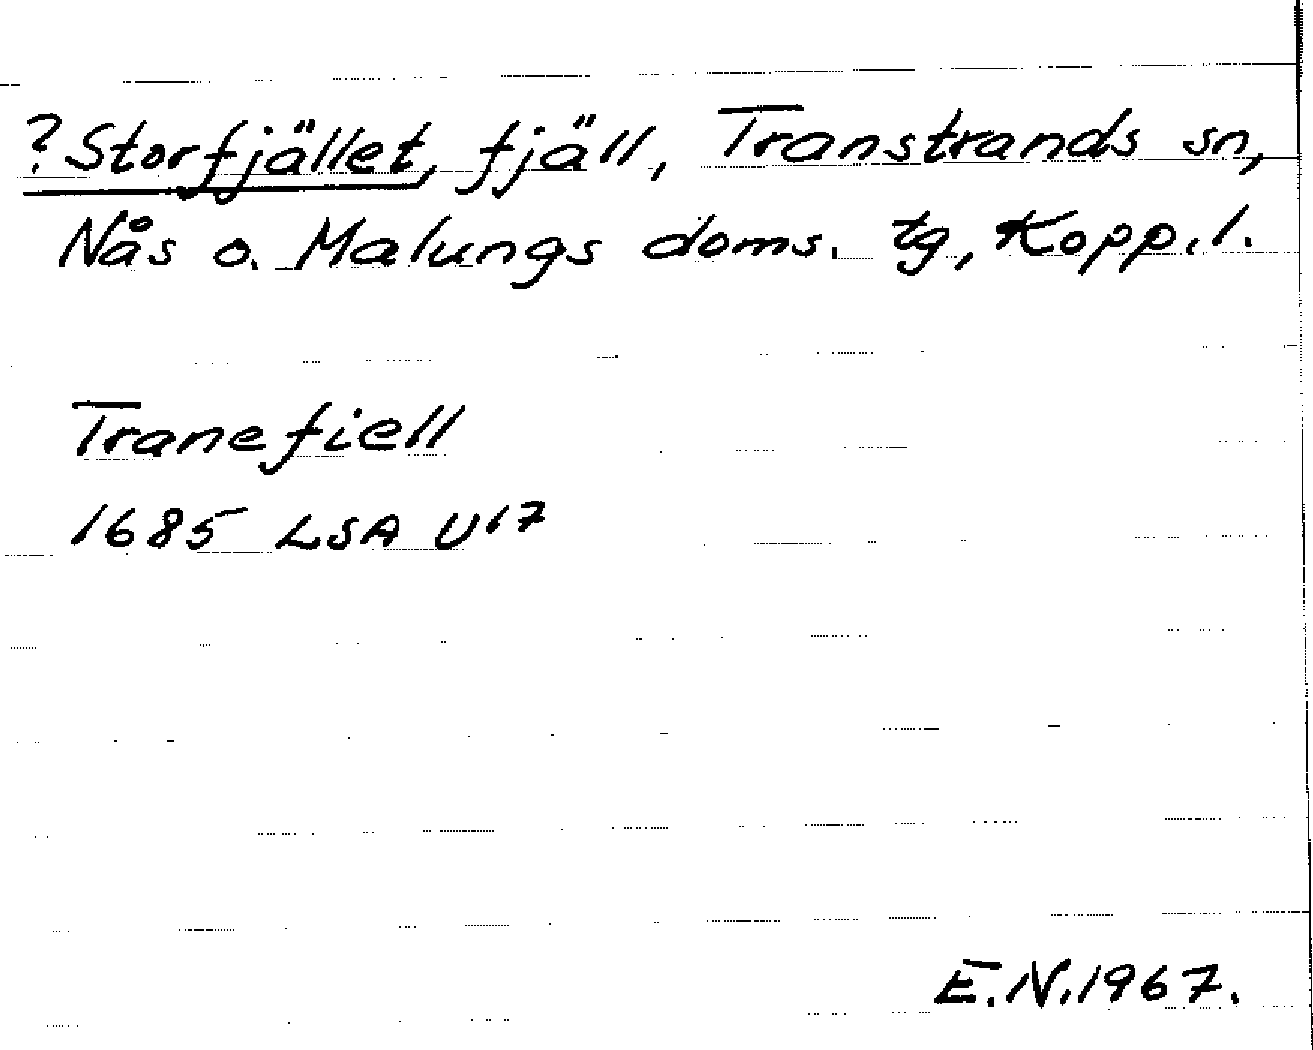 ?Storfjället, fjäll, Transtrands sn,
Nås o. Malungs doms. tg, Kopp. l.
Tranefiell
1685 LSA U17
E.N. 1967.